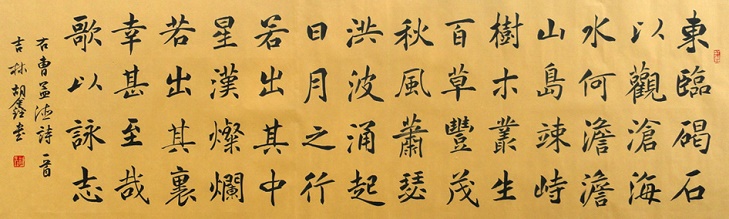 東臨碣石
以觀滄海
水何澹澹
山島竦峙
樹木叢生
百草豐茂
秋風蕭瑟
洪波涌起
日月之行
若出其中
星漢燦爛
若出其裏
幸甚至哉
歌以詠志
右曹孟德詩一首
吉林胡鑫書